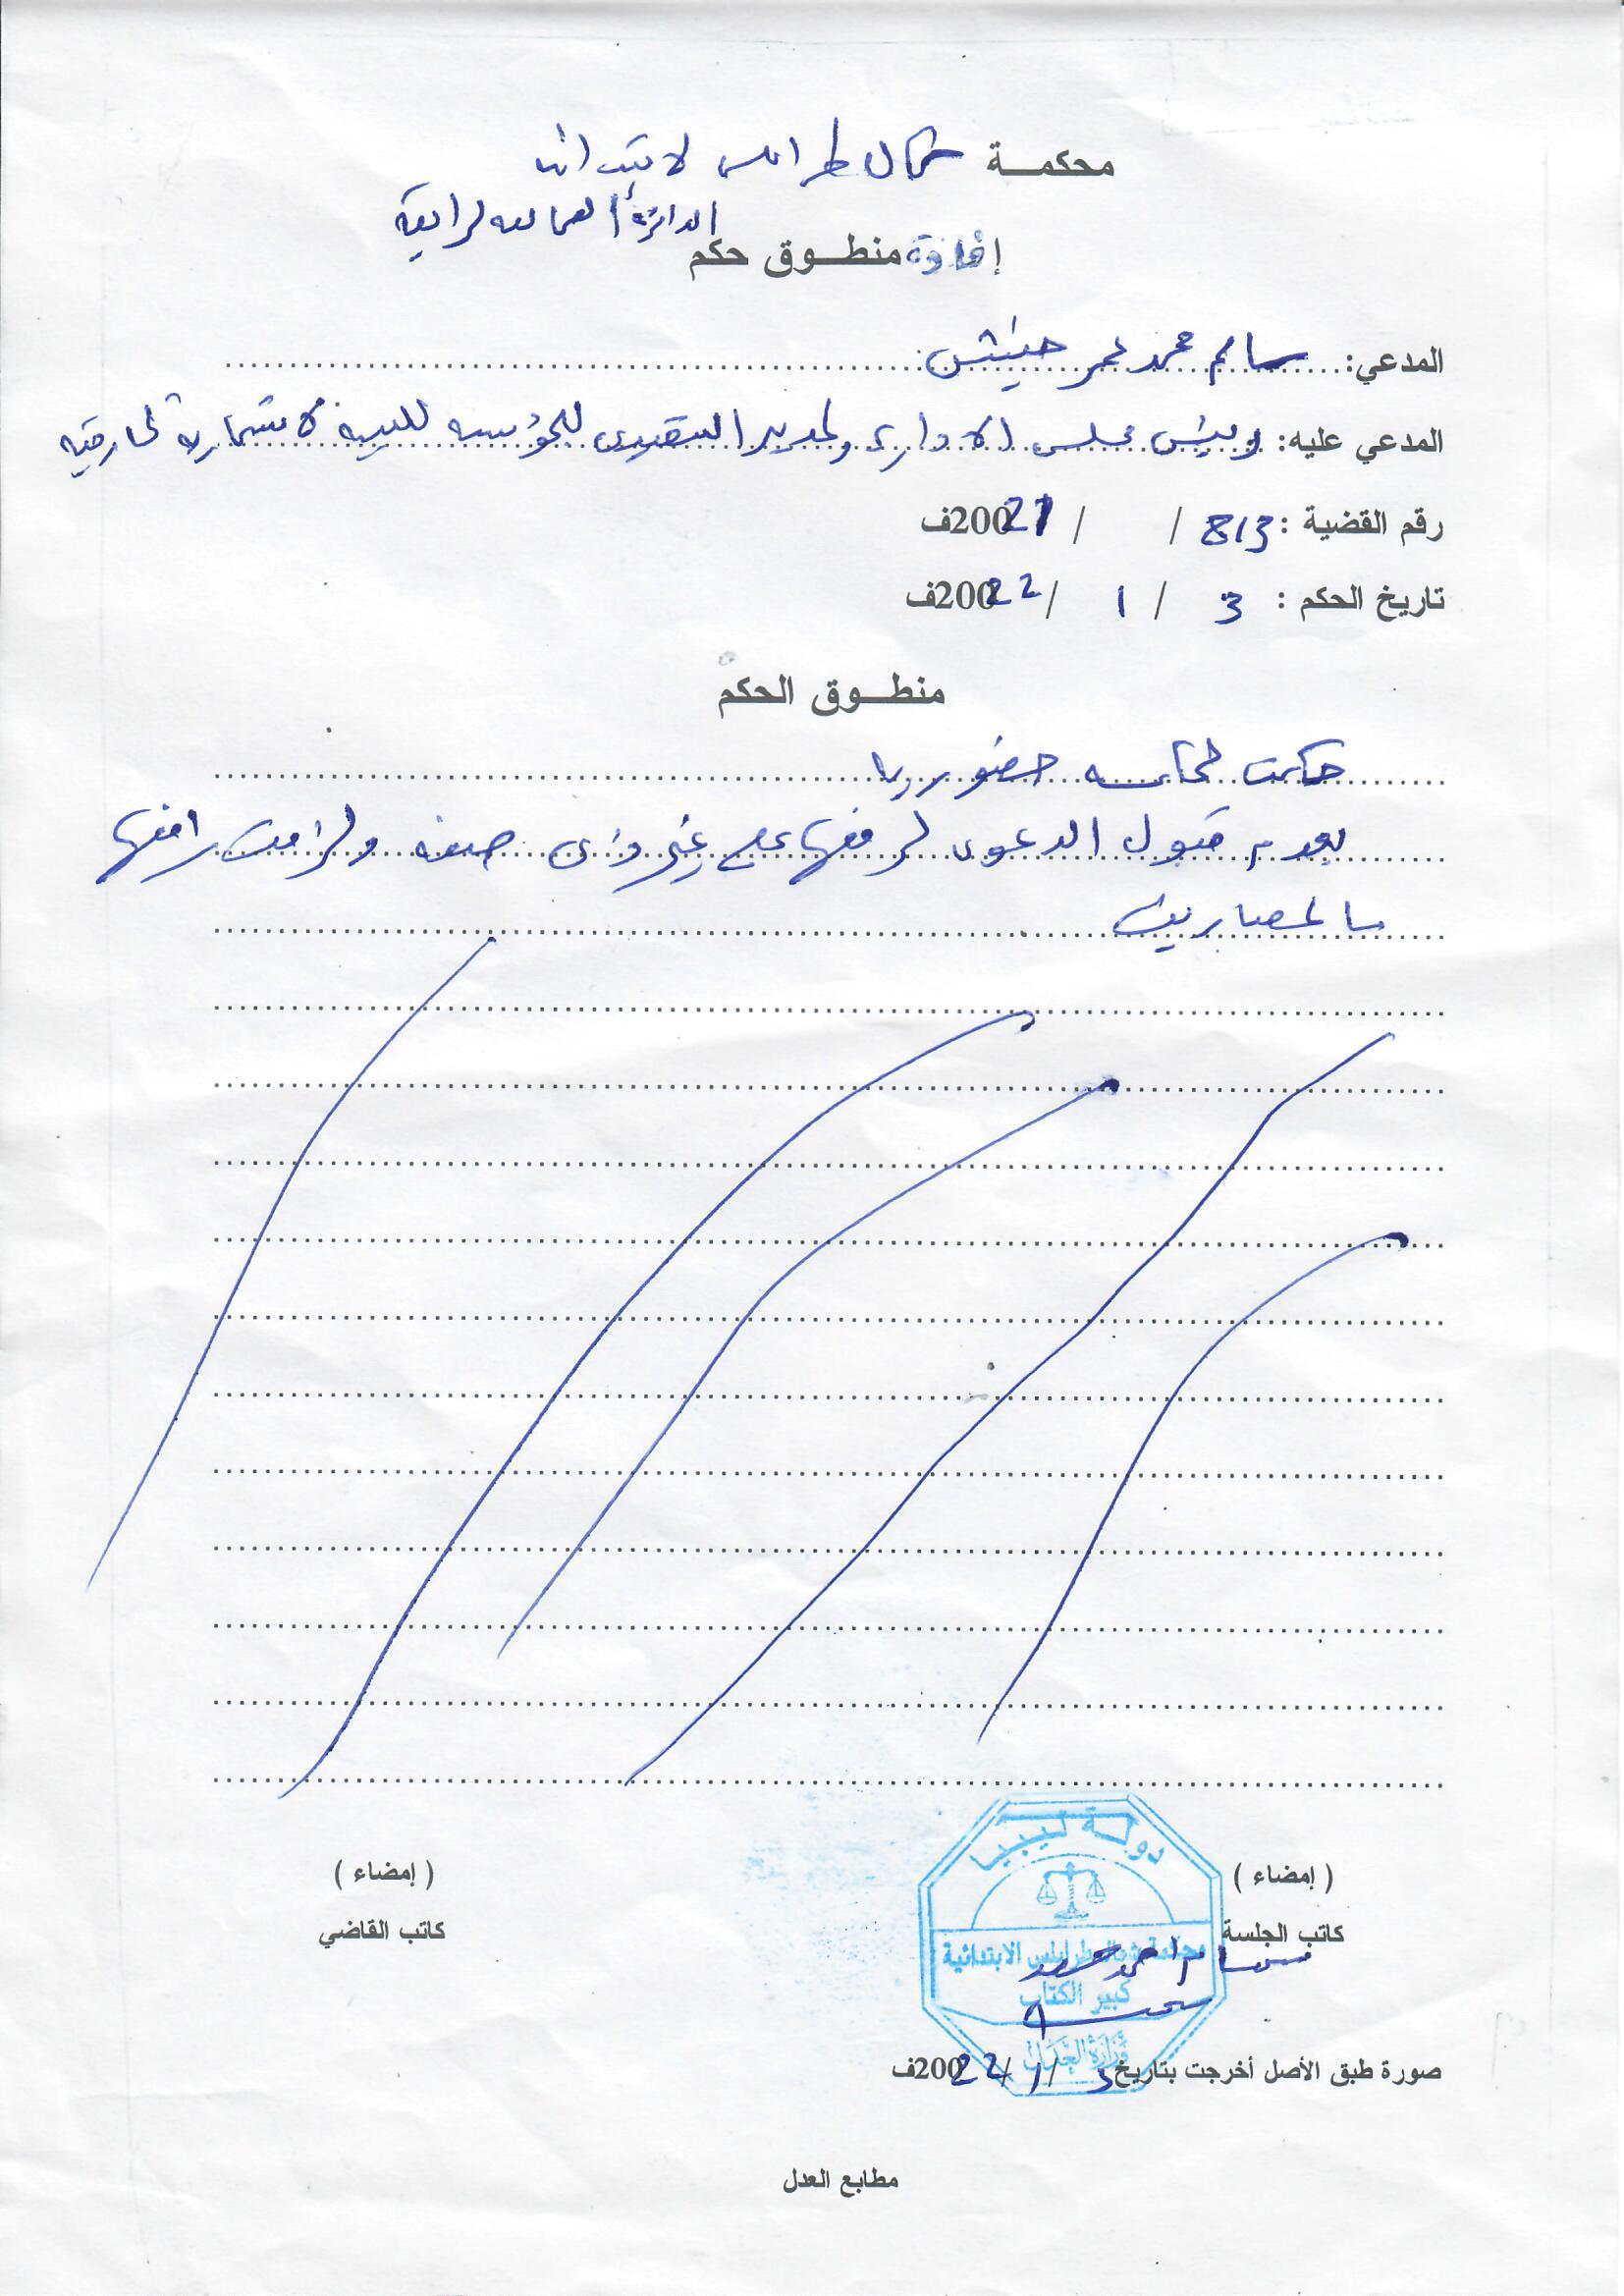 محكمة شمال طرابلس الابتدائية
الدائرة العمالية الرابعة
إفادة منطوق حكم
المدعي: سالم محمد عمر حنيش
المدعي عليه: رئيس مجلس الادارة والمدير التنفيذي للمؤسسة الليبية للاستثمارات الخارجية
رقم القضية : 813 / / 2021ف
تاريخ الحكم : 3 / 1 / 2022ف
منطوق الحكم
حكمت المحكمة حضوريا
بعدم قبول الدعوى لرفعها على غير ذي صفة والزامت رافعها
بالمصاريف
( إمضاء )
( إمضاء )
كاتب الجلسة
كاتب القاضي
دولة ليبيا
محكمة شمال طرابلس الابتدائية
كبير الكتاب
وزارة العدل
صورة طبق الأصل أخرجت بتاريخ 3 / 1 / 2022ف
مطابع العدل